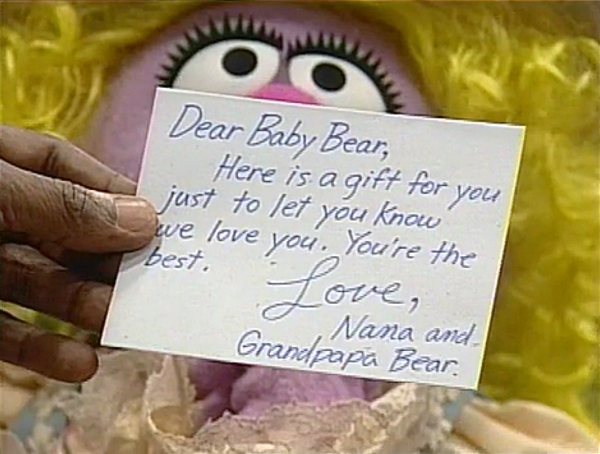 Dear Baby Bear,
Here is a gift for you
just to let you know
we love you. You're the
best.
Love,
Nana and
Grandpapa Bear.